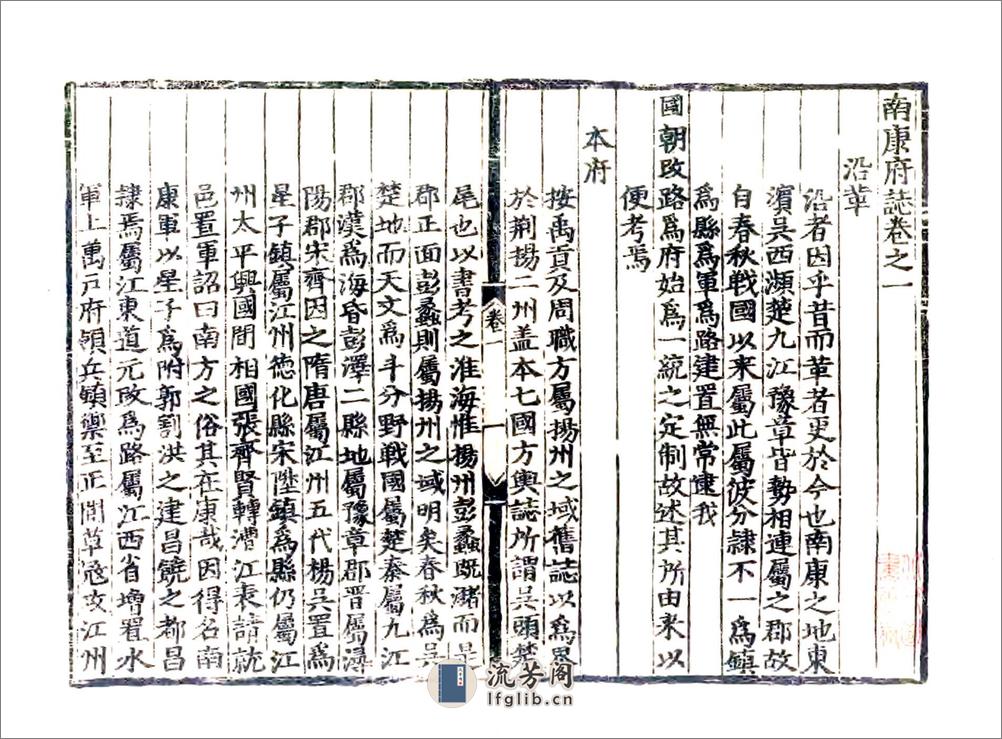 南康府誌卷之一
沿革
沿者因乎昔而革者更於今也南康之地東
濵吴西瀕楚九江豫章皆勢相連屬之郡故
自春秋戰國以來屬此屬彼分隷不一爲鎮
爲縣爲軍爲路建置無常逮我
國朝改路爲府始爲一統之定制故述其所由来以
便考焉
本府
按禹貢及周職方屬揚州之域舊誌以爲界
於荆揚二州盖本七國方輿誌所謂吴頭楚
尾也以書考之淮海惟揚州彭蠡既瀦而是
郡正面彭蠡則屬揚州之域明矣春秋爲吴
楚地而天文爲斗分野戰國屬楚秦屬九江
郡漢爲海昏彭澤二縣地屬豫章郡晋屬潯
陽郡宋齊因之隋唐屬江州五代楊吴置爲
星子鎮屬江州德化縣宋陞鎮爲縣仍屬江
州太平興國間相國張齊賢轉漕江表請就
邑置軍詔曰南方之俗其在康哉因得名南
康軍以星子爲附郭割洪之建昌饒之都昌
隷焉屬江東道元改爲路屬江西省增置水
軍上萬戸府領兵鎮禦至正間草冦攻江州
卷一
一
流芳阁
lfglib.cn